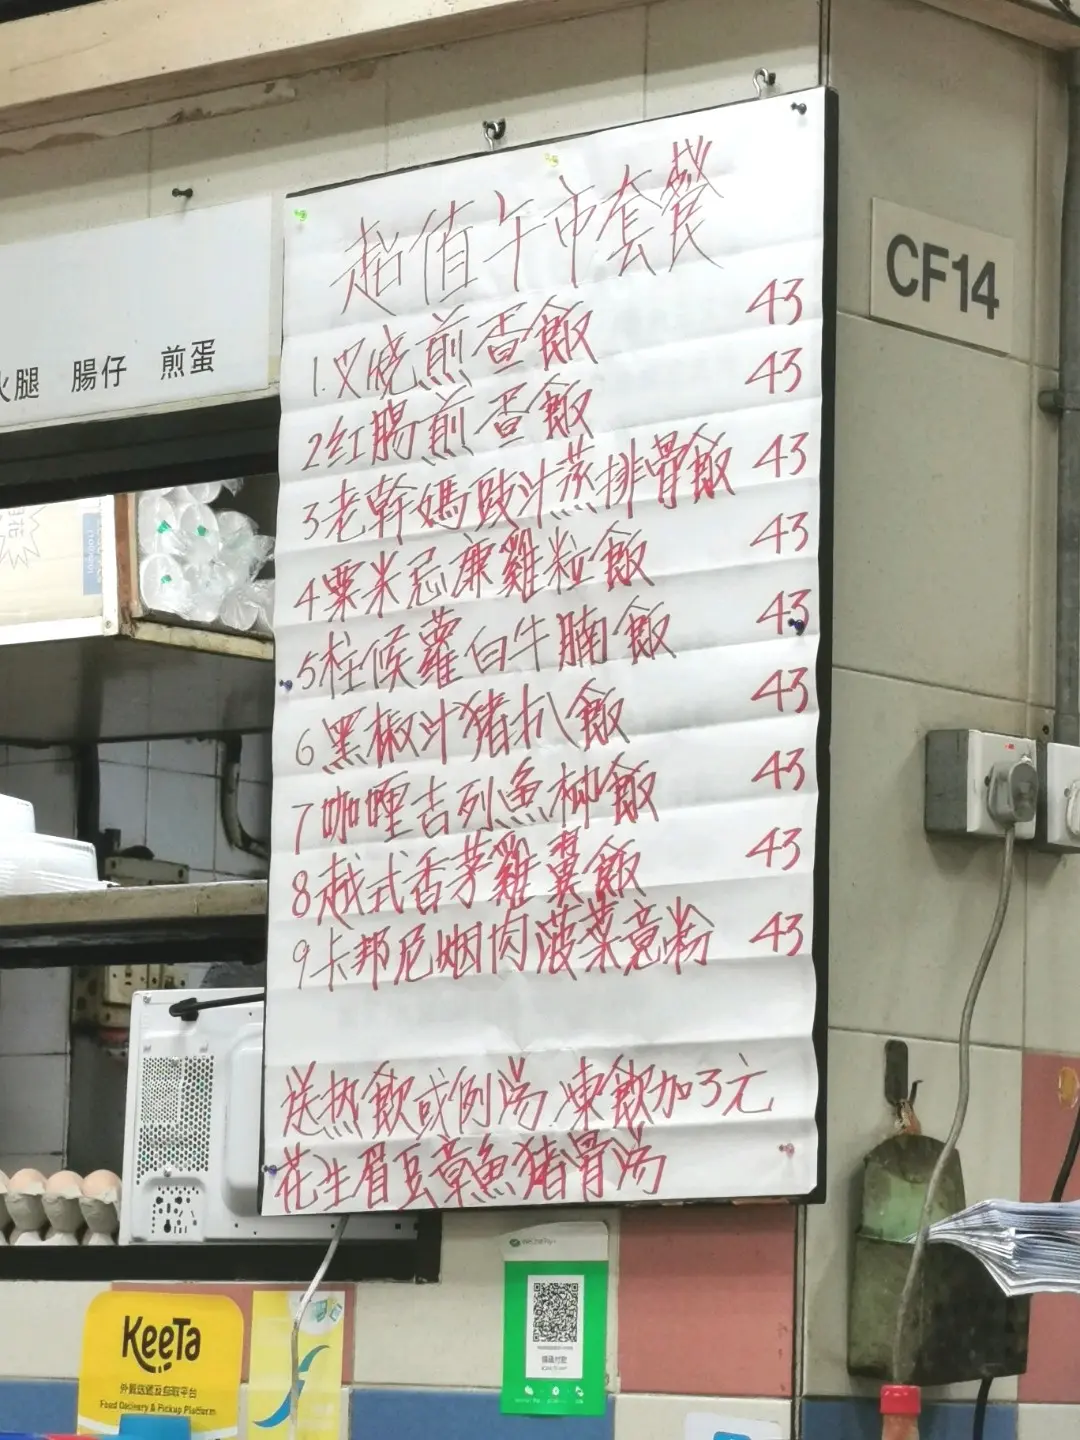 超值午市套餐
1.叉燒煎旦飯 43
2紅腸煎旦飯 43
3老幹媽豉汁蒸排骨飯 43
4粟米忌廉雞粒飯 43
5柱候蘿白牛腩飯 43
6黑椒汁猪扒飯 43
7咖喱吉列魚柳飯 43
8越式香茅雞翼飯 43
9卡邦尼烟肉菠菜意粉 43
送热飲或例湯.凍飲加3元
花生眉豆章魚猪骨湯
CF14
火腿 腸仔 煎蛋
KeeTa
外賣速遞及自取平台
Food Delivery & Pickup Platform
WeChat Pay